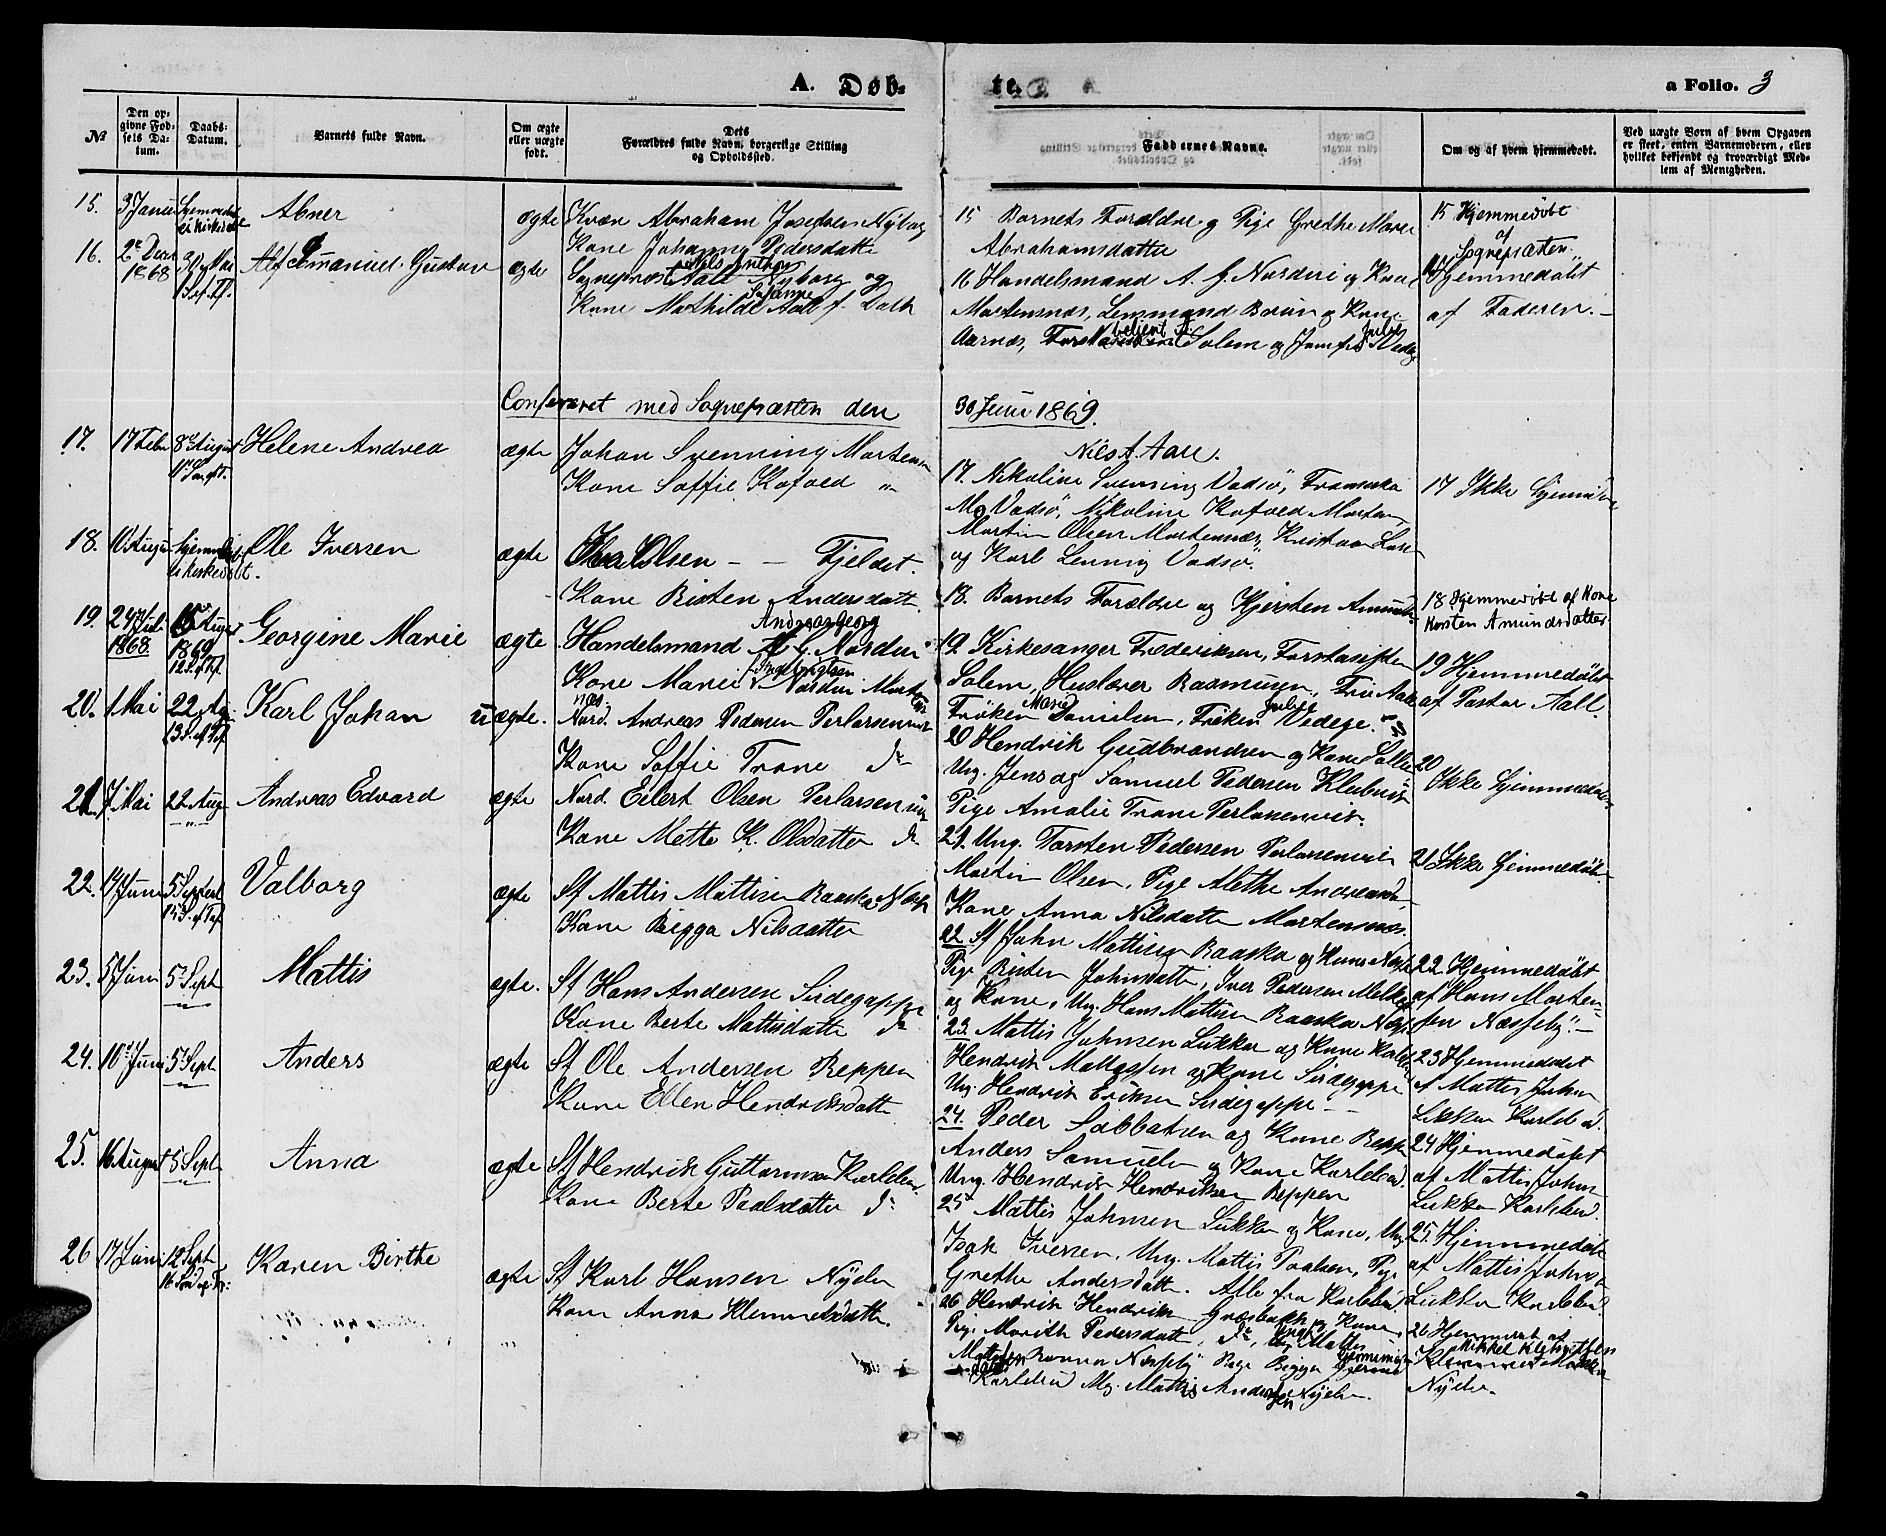 A. Døb-
te.
a Folio. 3
№
Den op-
givne Fød-
sels Da-
tum.
Daabs-
Datum.
Barnets fulde Navn.
Om ægte
eller uægte
født.
Dets
Forældres fulde Navn, borgerlige Stilling
og Opholdssted.
Faddernes Navne.
Om og af hvem hjemmedøbt.
Ved uægte Børn af hvem Opgaven
er skeet, enten Barnemoderen, eller
hvilket bekjendt og troværdigt Med-
lem af Menigheden.
15. 3 Janu Hjemmedøbt
ei kirkedøbt
Abner
ægte Kvæn Abraham Josefsen Nyborg
Kone Johanna Pedersdatter
15 Barnets Forældre og Pige Grethe Marie
Abrahamsdatter
15 Hjemmedøbt
af
Sognepræsten
16. 2den Decr
1868
Alf Emanuel Gustav
ægte Sognepræst Nils Anthon Aall Nyborg og
Kone Mathilde Susanne Aall f. Dall
16 Handelsmand A. G. Nordvi og Kone
Mortensnæs, Lensmand Bruun og Kone
Aarnæs, Solem og Jomfru Julie Vedege
16 Hjemmedøbt
af Faderen.
Confereret med Sognepræsten den 30 Juni 1869.
Niels A. Aall.
17. 17 Febr 8de August
11 S.
Helene Andrea
ægte Johan Svenning Mortensen
Kone Soffie Kofoed "
17. Nikoline Svenning Vadsø, Fransiska
M. Vadsø, Nikoline Kofoed Morten
Martin Olsen Mortensnæs, Kristian Lar
og Karl Lenning Vadsø.
17 Ikke hjemmedøbt
18. Hjemmedøbt
ei kirkedøbt.
Ole Iversen
ægte Iver Olsen - - Fjeldet.
Kone Risten Andersdatter
18. Barnets Forældre og Kjersten Amunds
18 Hjemmedøbt af Kone
Kersten Amundsdatter
19. 24 Juli
1868
15 August
1869
12 S. ef Tr.
Georgine Marie
ægte Handelsmand Andreas Georg Nordvi
Kone Marie f. Ingebrigtsen Nordvi Mortens
næs
19. Kirkesanger Frederiksen, Forstassistent
Solem, Huslærer Rasmusen, Frue Aall
Frøken Marie Danielsen, Frøken Julie Vedege.
19 Hjemmedøbt
af Pastor Aall.
20. 1. Mai 22 Aug
13 S. ef Tr
Karl Johan
uægte. Nord. Andreas Pedersen Perlarsenvik
Kone Soffie Trane do
20 Hendrik Gudbrandsen og Kone Salttje
Ung. Jens og Samuel Pedersen Klubvik
Pige Amalie Trane Perlarsenvik.
20
Ikke hjemmedøbt
21. 7 Mai 22 Aug
Andreas Edvard
ægte Nord. Eilert Olsen Perlarsenvik
Kone Mette K. Olsdatter do
21. Ung. Torsten Pedersen Perlarsenvik
Martin Olsen, Pige Alethe Andreasd.
Kone Anna Nilsdatter Mortensnæs.
21 Ikke hjemmedøbt
22. 14 Juni 5 Septbr
15 S. ef Tr
Valborg
ægte Sf Mattis Mattisen Raaska Næss
Kone Bigga Nilsdatter
22 Sf John Mattisen Raaska og Kone Næsse
Pige Risten Johnsdatter, Iver Pedersen Melke
og Kone, Ung. Hans Mattisen Raaska Næss
22 Hjemmedøbt
af Hans Morten-
sen Næsseby.-
23. 5 Juni 5 Sept
Mattis
ægte. Sf Hans Andersen Sirdegoppe
Kone Berte Mattisdatter do
23. Mattis Johnsen Lukkar og Kone Karlebo
Hendrik Mattissen og Kone Sirdegoppe
Ung. Hendrik Eriksen Sirdegoppe -
23 Hjemmedøbt
af Mattis Johns
Lukkar Karlebo.
24. 10 Juni 5 Sept
Anders
ægte Sf Ole Andersen Reppen
Kone Ellen Hendriksdatter
24. Peder Sabbatsen og Kone Repp
Anders Samuelsen og Kone Karlebod.
Ung. Hendrik Hendriksen Reppen
24 Hjemmedøbt
af Mattis Johns
Lukkar Karlebod.
25. 16 August 5 Sept
Anna
ægte Sf Hendrik Guttormsen Karlebo
Kone Berte Paalsdatter do
25 Mattis Johnsen Lukkar og Kone, Ung.
Isak Iversen, Ung. Mattis Paalsen, Pige
Grethe Andersdatter. Alle fra Karlebod
25. Hjemmedøbt
af Mattis Johns
Lukkar Karlebod.
26 17 Juni 12 Sept
16 S
Karen Birthe
ægte Sf Karl Hansen Nyelv
Kone Anna Klemmetsdatter.
26 Hendrik Hendriksen Græsbakk og Kone
Pige Marith Pedersdatter, do, Ung Mattis
Mattisen Næsseby Pige Bigga
Karlebod Ung. Mattis Andersen Nyelv.
26 Hjemmedøbt af
Mikkel
Nyelv.